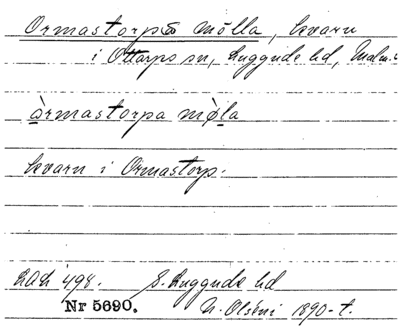 Ormastorps mölla, kvarn
i Ottarps sn, Luggude hd, Malm.
àrmastorpa mø̀la
kvarn i Ormastorp.
LAL 498. S. Luggude hd
Nr 5690. N. Olséni 1890-t.